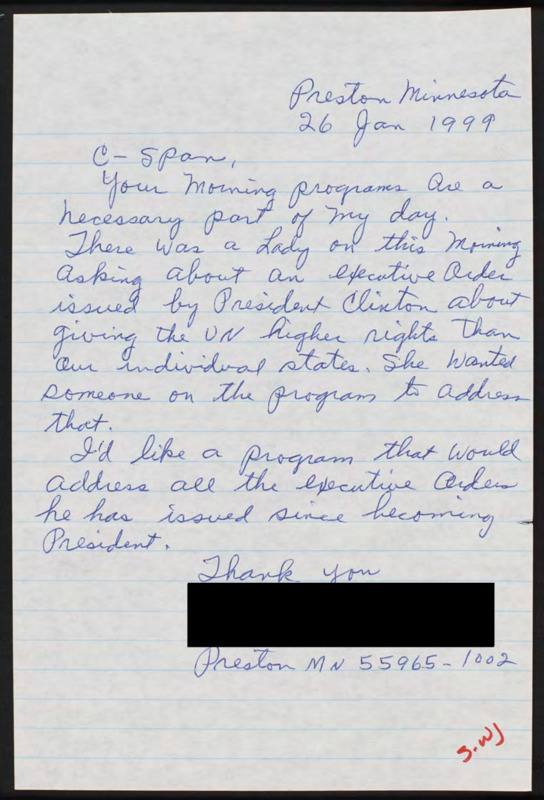 Preston Minnesota
26 Jan 1999
C-Span,
Your Morning programs are a
necessary part of my day.
There was a Lady on this Morning
asking about an executive Order
issued by President Clinton about
giving the UN higher rights Than
Our individual states. She wanted
someone on the program to address
that.
I'd like a program that would
address all the executive Orders
he has issued since becoming
President.
Thank you
Preston MN 55965-1002
S.WJ